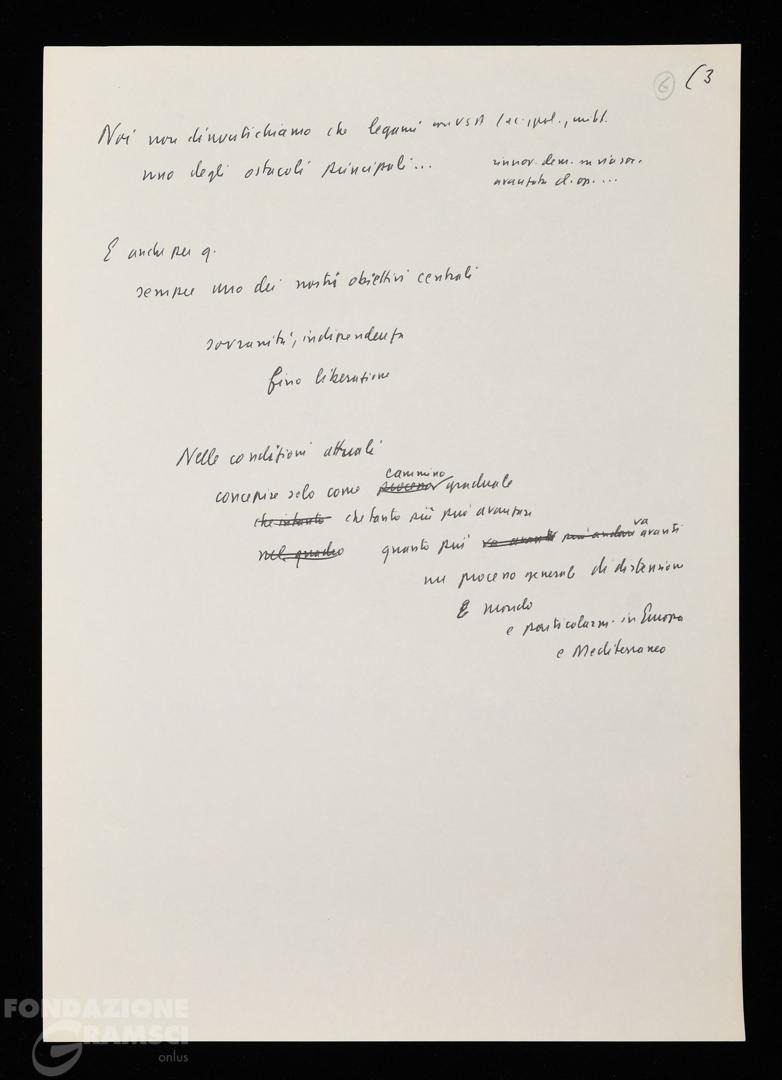 6 (3
Noi non dimentichiamo che legami con USA (ec., pol., milit.
uno degli ostacoli principali... rinnov. dem. in via soc.
avanzata d. op. ...
E anche per q.
sempre uno dei nostri obiettivi centrali
sovranità, indipendenza
fino liberazione
Nelle condizioni attuali
cammino
concepire solo come processo graduale
che intanto che tanto più può avanzare
nel quadro quanto più va avanti può andare va avanti
un processo generale di distensione
E mondo
e particolarm. in Europa
e Mediterraneo
FONDAZIONE
GRAMSCI
onlus